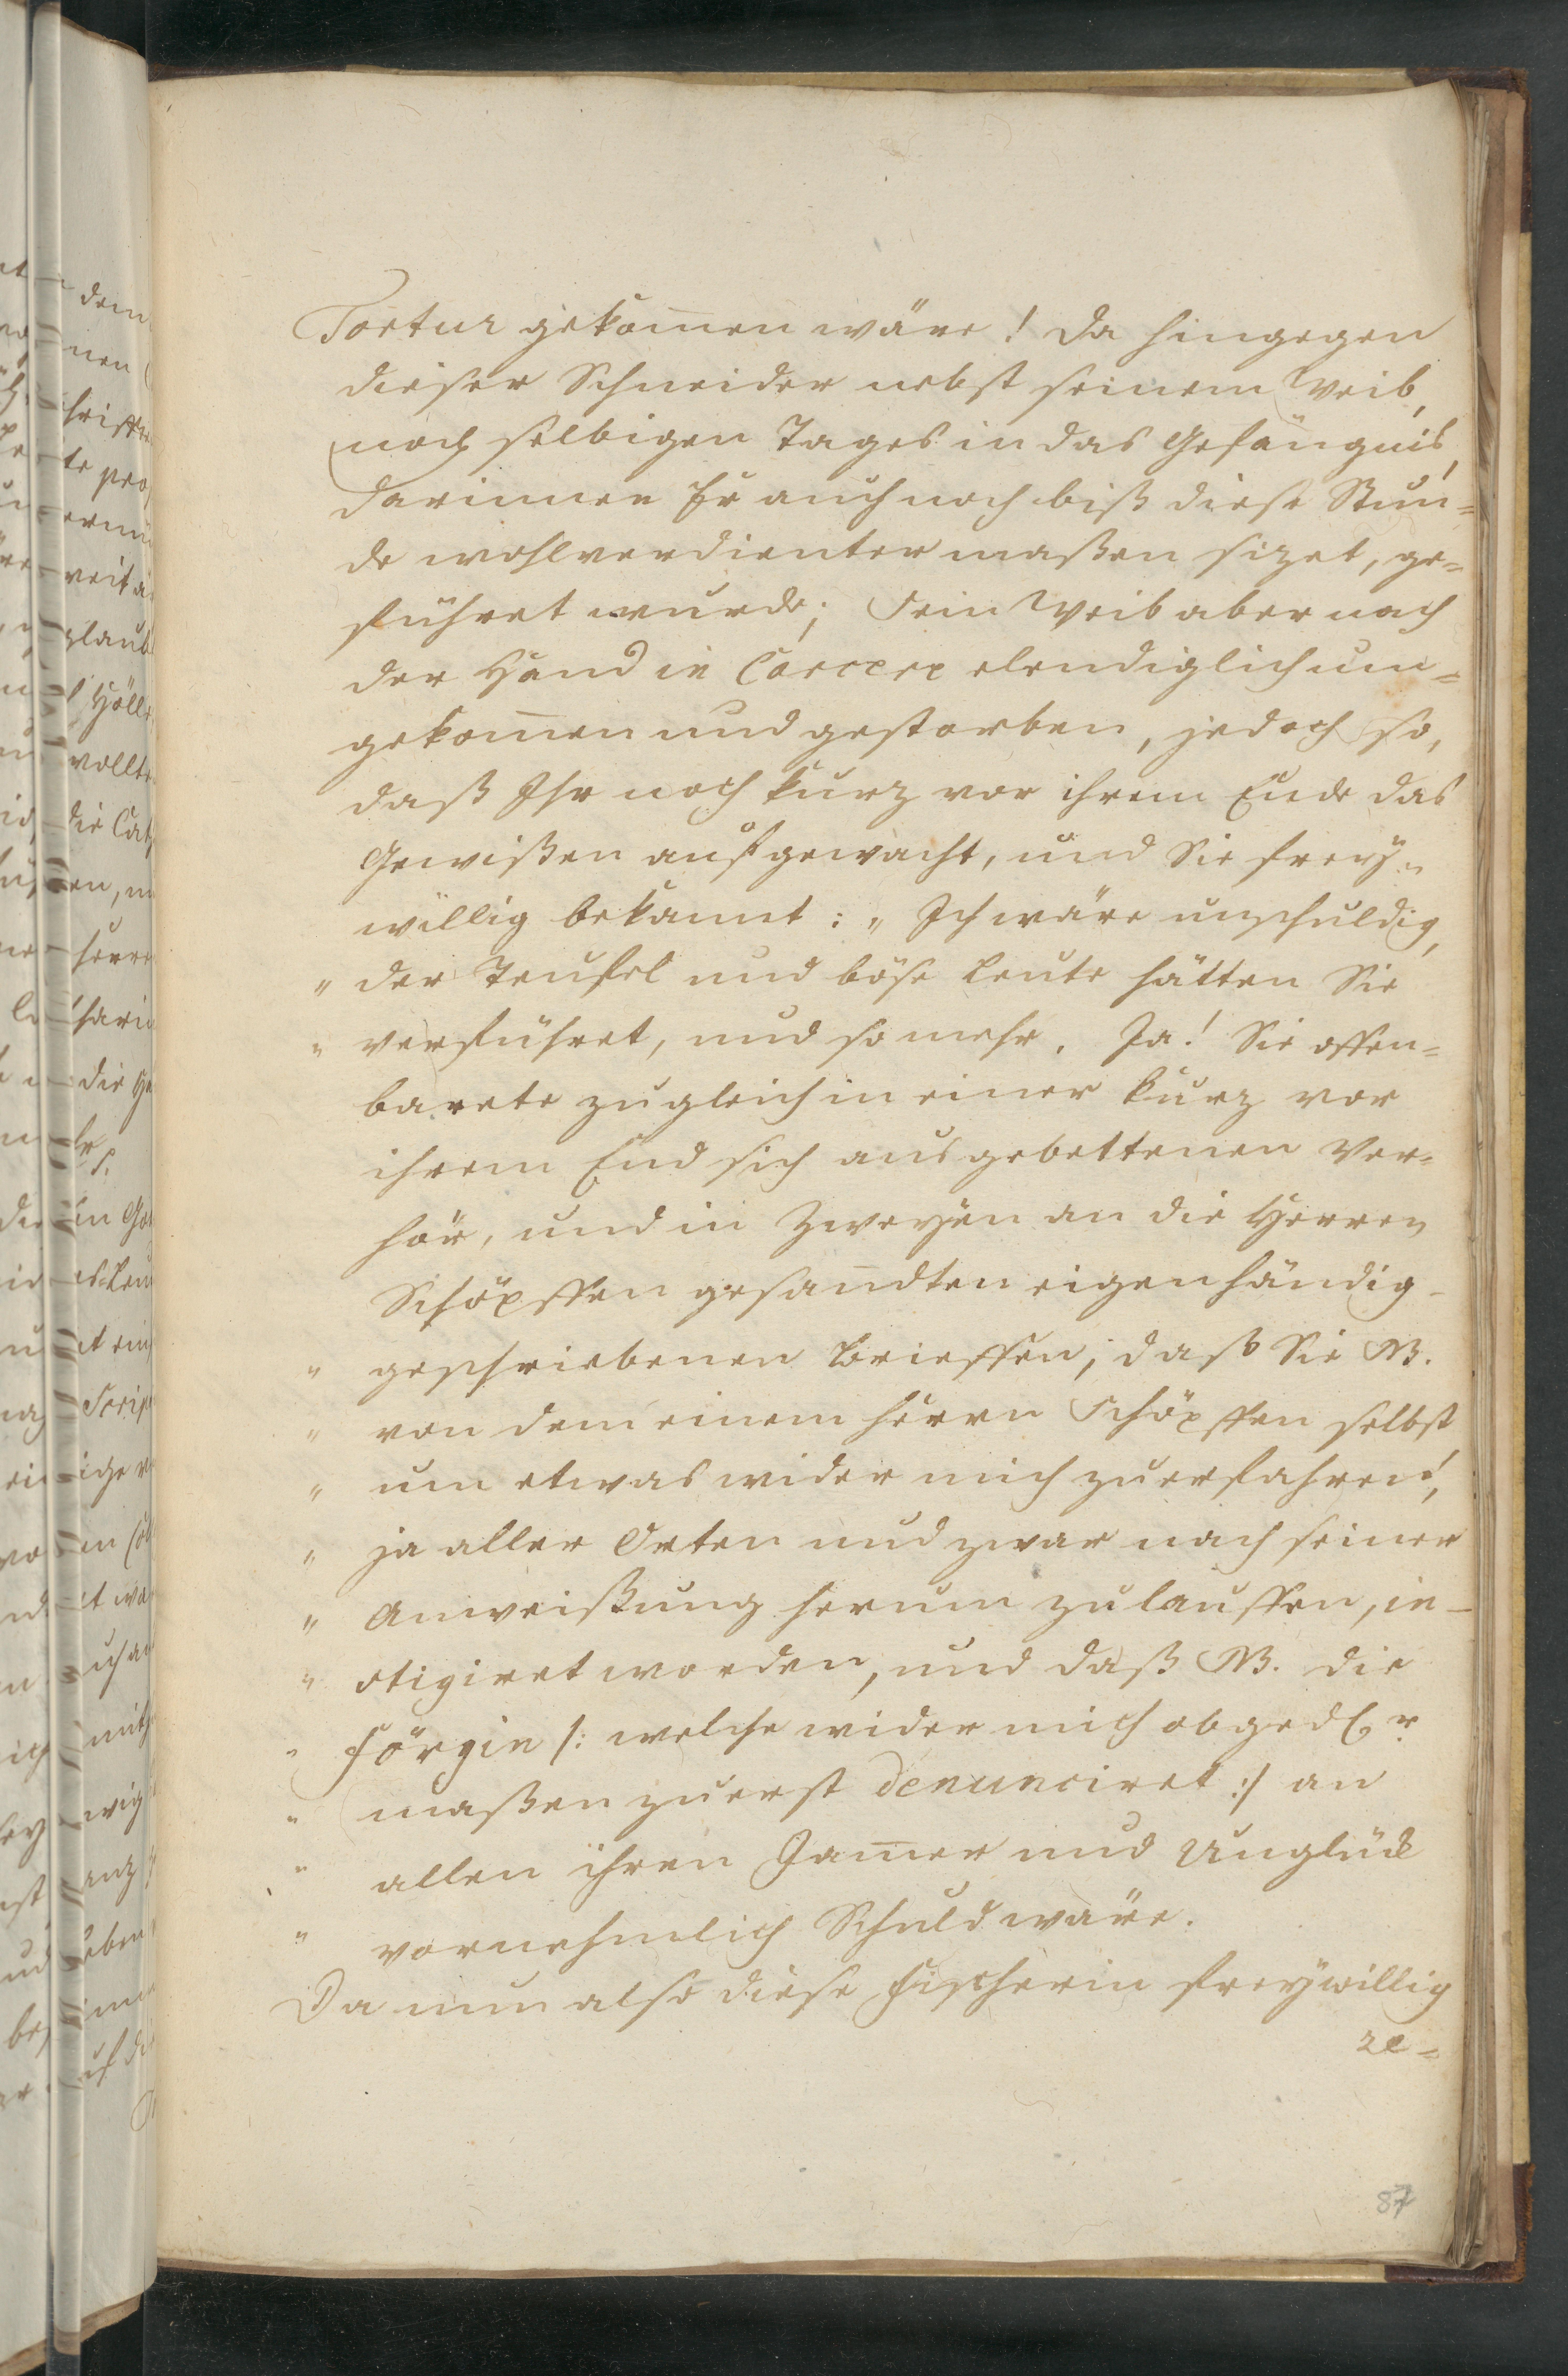 Tortur gekom̅en wäre! Da hingegen
dieser Schneider nebst seinem Weib,
noch selbigen Tages in das Gefängnis,
darinnen Er auch noch biß diese Stun=
de wohlverdienter maßen sizet, ge=
führet wurde; Sein Weib aber nach
der Hand in Carcere elendiglich um=
gekom̅en und gestorben, jedoch so,
daß Ihr noch kurz vor ihrem Ende das
Gewißen aufgewacht, und Sie frey=
willig bekannt: „ Ich wäre unschuldig,
„ der Teufel und böse Leute hätten Sie
„ verführet, und so mehr. Ja! Sie offen=
barete zugleich in einer kurz vor
ihrem End sich ausgebettenen Ver=
hör, und in Zweyen an die Herren
Schöpffen gesan̅dten eigenhändig-
„ geschriebenen Brieffen, daß Sie NB.
„ von dem einem Herrn Schöpffen selbst
„ um etwas wider mich zuerfahren,
„ ja aller Orten und zwar nach seiner
„ Anweißung herum zulauffen, in-
„ stigiret worden, und daß NB. die
„ Förgin /: welche wider mich obgedter
„ maßen zuerst denunciret :/ an
„ allen ihren Jam̅er und Unglück
„ vornehmlich Schuld wäre.
Da nun also diese Fischerin freywillig
re=
87
dem
nen
te
glaub
Höll
wollt
die
en,
die